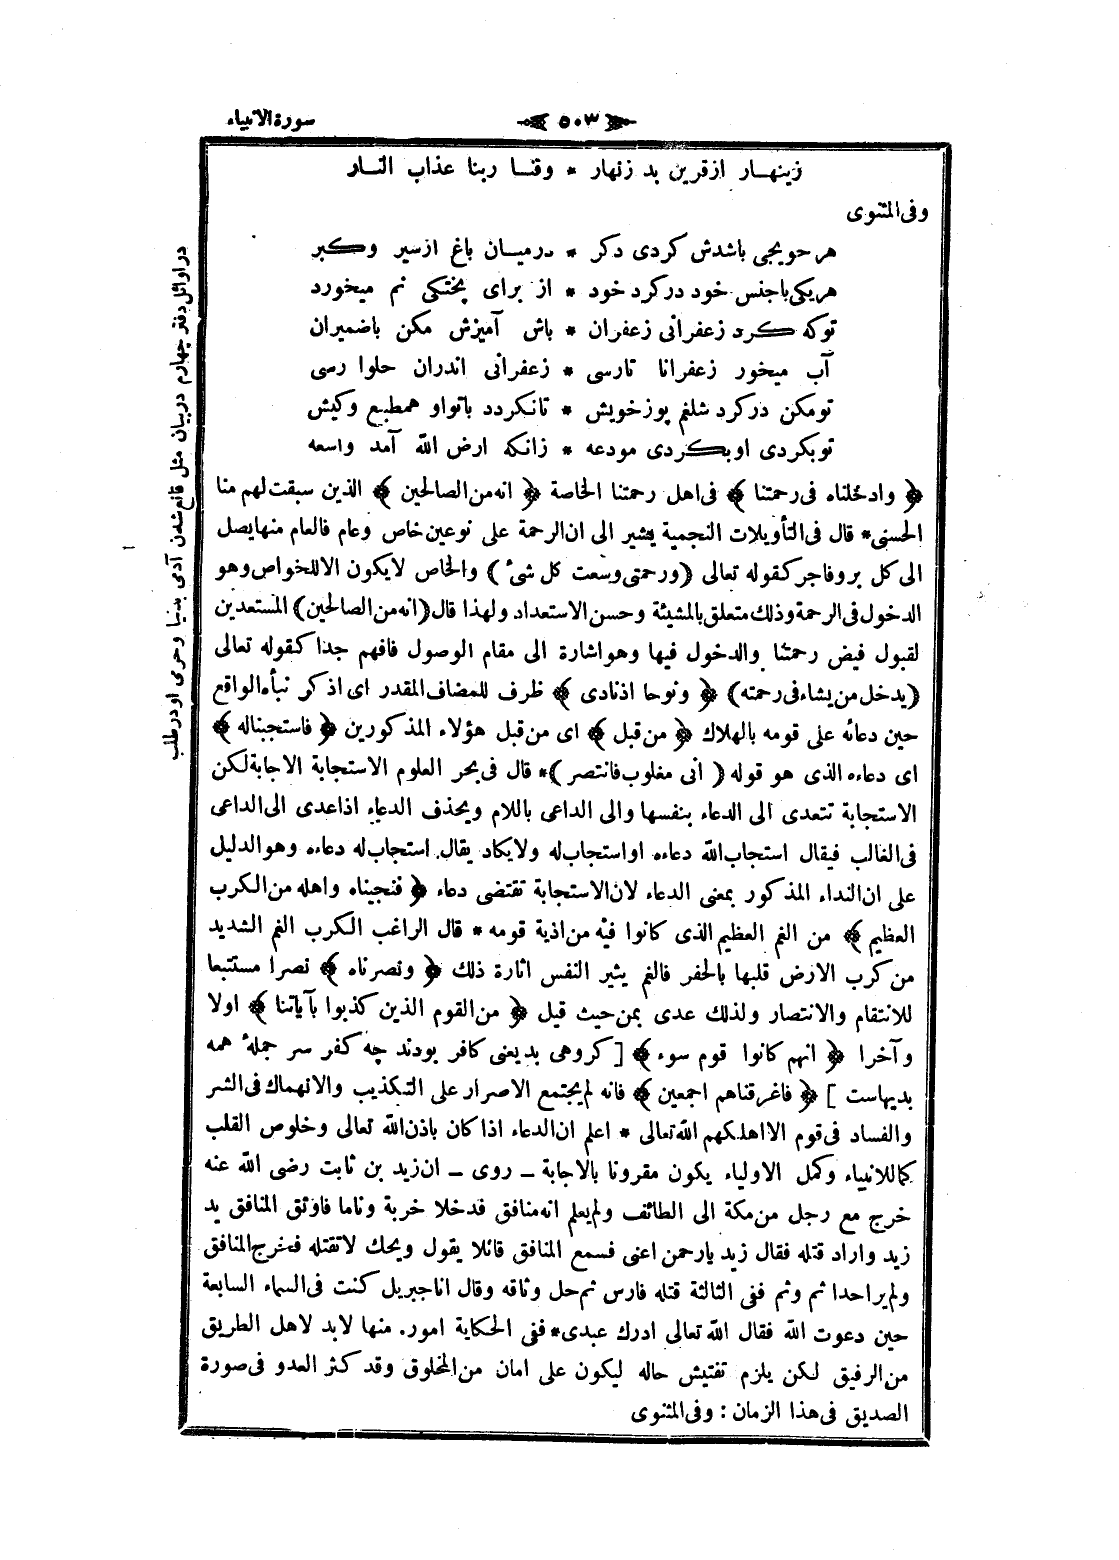 سورة الانبياء
٥٠٣
زينهار ازقرين بد زنهار * وقنا ربنا عذاب النار
وفى المثنوى
هر حويجى باشدش كردى دكر * درميان باغ ازسير وكبر
هريكى باجنس خود دركرد خود * از براى پختكى نم ميخورد
توكه كرد زعفرانى زعفران * باش آميزش مكن باضميران
آب ميخور زعفرانا تارسى * زعفرانى اندران حلوا رسى
تومكن دركرد شلغم پوز خويش * تانكردد باتواو همطبع وكيش
توبكردى اوبكردى مودعه * زانكه ارض الله آمد واسعه
﴿ وادخلناه فى رحمتنا ﴾ فى اهل رحمتنا الخاصة ﴿ انه من الصالحين ﴾ الذين سبقت لهم منا
الحسنى * قال فى التأويلات النجمية يشير الى ان الرحمة على نوعين خاص وعام فالعام منها يصل
الى كل بر وفاجر كقوله تعالى (ورحمتى وسعت كل شئ) والخاص لايكون الا للخواص وهو
الدخول فى الرحمة وذلك متعلق بالمشيئة وحسن الاستعداد ولهذا قال (انه من الصالحين) المستعدين
لقبول فيض رحمتنا والدخول فيها وهو اشارة الى مقام الوصول فافهم جدا كقوله تعالى
(يدخل من يشاء فى رحمته) ﴿ ونوحا اذنادى ﴾ ظرف للمضاف المقدر اى اذكر نبأه الواقع
حين دعائه على قومه بالهلاك ﴿ من قبل ﴾ اى من قبل هؤلاء المذكورين ﴿ فاستجبناله ﴾
اى دعاءه الذى هو قوله ( أنى مغلوب فانتصر ) * قال فى بحر العلوم الاستجابة الاجابة لكن
الاستجابة تتعدى الى الدعاء بنفسها والى الداعى باللام ويحذف الدعاء اذا عدى الى الداعى
فى الغالب فيقال استجاب الله دعاءه او استجاب له ولايكاد يقال استجاب له دعاءه وهو الدليل
على ان النداء المذكور بمعنى الدعاء لان الاستجابة تقتضى دعاء ﴿ فنجيناه واهله من الكرب
العظيم ﴾ من الغم العظيم الذى كانوا فيه من اذية قومه * قال الراغب الكرب الغم الشديد
من كرب الارض قلبها بالحفر فالغم يثير النفس اثارة ذلك ﴿ ونصرناه ﴾ نصرا مستتبعا
للانتقام والانتصار ولذلك عدى بمن حيث قيل ﴿ من القوم الذين كذبوا بآياتنا ﴾ اولا
وآخرا ﴿ انهم كانوا قوم سوء ﴾ [ كروهى بد يعنى كافر بودند چه كفر سر جملهٔ همه
بديهاست ] ﴿ فاغرقناهم اجمعين ﴾ فانه لم يجتمع الاصرار على التكذيب والانهماك فى الشر
والفساد فى قوم الا اهلكهم الله تعالى * اعلم ان الدعاء اذا كان باذن الله تعالى وخلوص القلب
كما للانبياء وكمل الاولياء يكون مقرونا بالاجابة ـ روى ـ ان زيد بن ثابت رضى الله عنه
خرج مع رجل من مكة الى الطائف ولم يعلم انه منافق فدخلا خربة وناما فاوثق المنافق يد
زيد واراد قتله فقال زيد يارحمن اعنى فسمع المنافق قائلا يقول ويحك لاتقتله فخرج المنافق
ولم ير احدا ثم وثم ففى الثالثة قتله فارس ثم حل وثاقه وقال انا جبريل كنت فى السماء السابعة
حين دعوت الله فقال الله تعالى ادرك عبدى * ففى الحكاية امور. منها لابد لاهل الطريق
من الرفيق لكن يلزم تفتيش حاله ليكون على امان من المخلوق وقد كثر العدو فى صورة
الصديق فى هذا الزمان : وفى المثنوى
در اوائل دفتر چهارم دربيان مثل قانع شدن آدمى بدنيا وحرص او درطلب